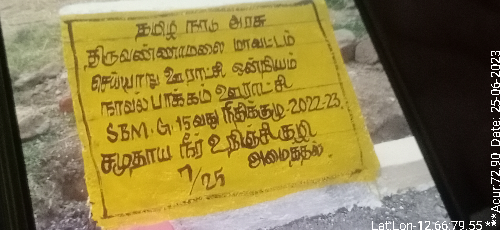 தமிழ் நாடு அரசு
திருவண்ணாமலை மாவட்டம்
செய்யாறு ஊராட்சி ஒன்றியம்
நாவல்பாக்கம் ஊராட்சி
SBM.G. 15வது நிதிக்குழு. 2022-23.
சமுதாய நீர் உறிஞ்சி குழி
அமைத்தல்
7/25
Lat*Lon-12.66,79.55***Acur72.90 Date: 25-06-2023